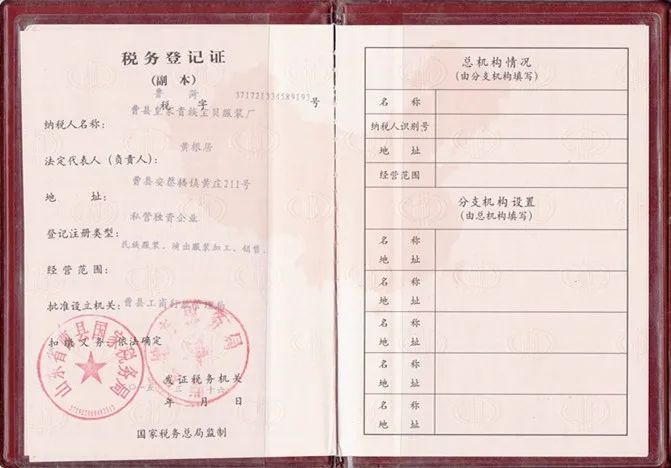 税务登记证
(副 本)
税 字 号
曹县皇家贵族宝贝服装厂
纳税人名称：
黄银居
法定代表人（负责人）：
曹县安蔡楼镇黄庄211号
地 址：
私营独资企业
登记注册类型：
民族服装、演出服装加工、销售、
经营范围：
批准设立机关：曹县工商行政管理局
扣缴义务：依法确定
山东省曹县国家税务局
发证税务机关
年 月 日
国家税务总局监制
总机构情况
（由分支机构填写）
名 称
纳税人识别号
地 址
经营范围
分支机构设置
（由总机构填写）
名 称
地 址
名 称
地 址
名 称
地 址
名 称
地 址
名 称
地 址